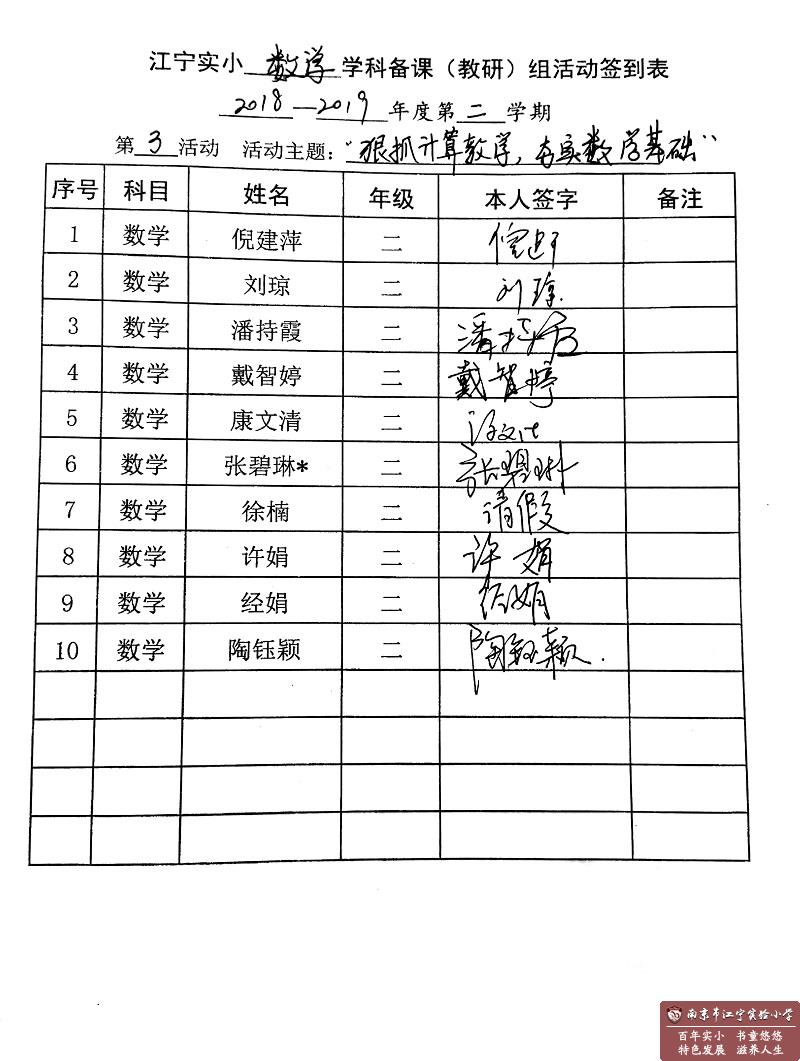 江宁实小 数学 学科备课（教研）组活动签到表
2018—2019 年度第 二 学期
第 3 活动 活动主题：“狠抓计算教学，夯实数学基础”
序号 科目 姓名 年级 本人签字 备注
1 数学 倪建萍 二
2 数学 刘琼 二 刘琼
3 数学 潘持霞 二 潘持霞
4 数学 戴智婷 二 戴智婷
5 数学 康文清 二
6 数学 张碧琳* 二 张碧琳
7 数学 徐楠 二 请假
8 数学 许娟 二 许娟
9 数学 经娟 二 经娟
10 数学 陶钰颖 二 陶钰颖.
南京市江宁实验小学
百年实小 书童悠悠
特色发展 滋养人生